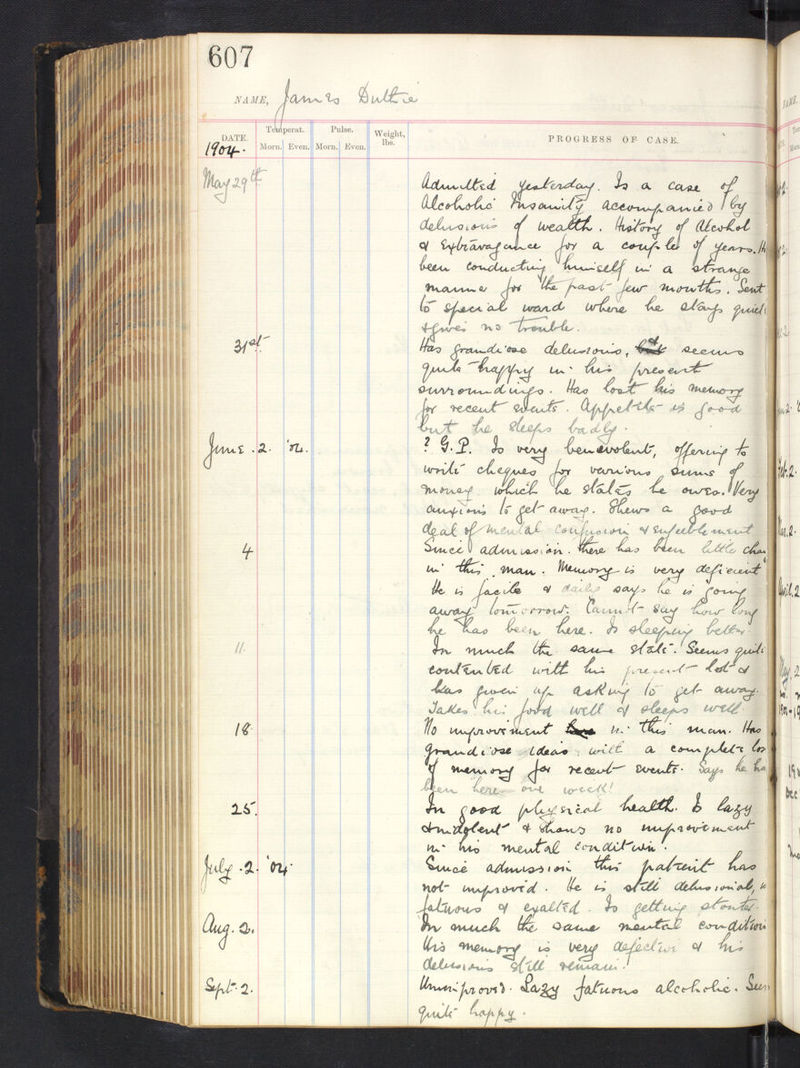 607
NAME, James Duthie
DATE. Temperat. Pulse. Weight, lbs. PROGRESS OF CASE.
1904. Morn. Even. Morn. Even.
May 29th Admitted yesterday. Is a case of
Alcoholic Insanity accompanied by
delusions of wealth. History of Alcohol
& Extravagance for a couple of years. H
been conducting himself in a strange
manner for the past few months. Sent
to special ward where he stays quiet
& gives no trouble.
31st Has grandiose delusions, & seems
quite happy in his present
surroundings. Has lost his memory
for recent events. Appetite is good
but he sleeps badly.
June. 2. '04. ? G.P. Is very benevolent, offering to
write cheques for various sums of
money which he states he owes. Very
anxious to get away. Shews a good
deal of mental confusion & enfeeblement
4 Since admission there has been little chan
in this man. Memory is very deficient
He is facile & daily says he is going
away tomorrow. Cannot say how long
he has been here. Is sleeping better
11. In much the same state. Seems quite
contented with his present lot &
has given up asking to get away.
Takes his food well & sleeps well
18 No improvement in this man. Has
grandiose ideas with a complete los
of memory for recent events. Says he ha
been here one week!
25. In good physical health. Is lazy
& indolent & shows no improvement
in his mental condition.
July. 2. '04. Since admission this patient has
not improved. He is still delusional,
fatuous & exalted. Is getting stouter.
Aug. 2. In much the same mental condition
His memory is very defective & his
delusions still remain.
Sept. 2. Unimproved. Lazy fatuous alcoholic. Seem
quite happy.